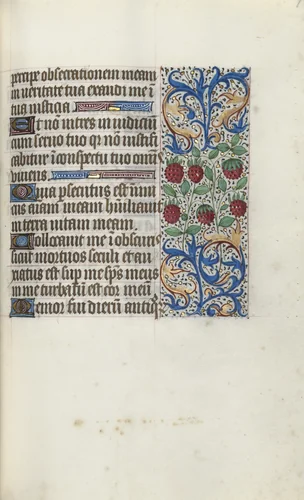 percipe obsecrationem meam
in veritate tua exaudi me i
tua iusticia
Et no intres in iudiciu
cum servo tuo q no iusti
cabitur i conspectu tuo omis
vivens
Quia psecutus est inimi
cus aiam meam humiliavit
in terra vitam meam
Collocavit me i obscuris
sicut mortuos seculi et anx
iatus est sup me sps meus
in me turbatu est cor meu
Memor fui dierum antiq